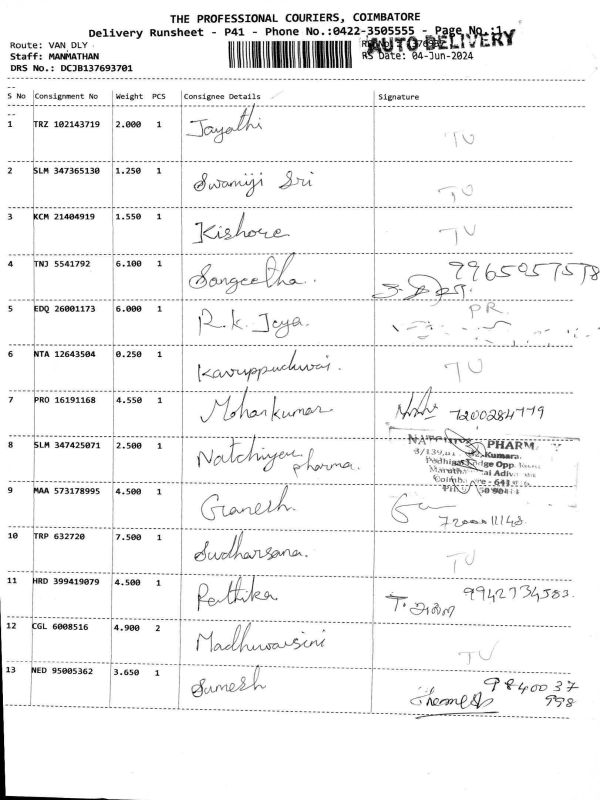 THE PROFESSIONAL COURIERS, COIMBATORE
Delivery Runsheet - P41 - Phone No.:0422-3505555 - Page No.:1
Route: VAN DLY
AUTO DELIVERY
Staff: MANMATHAN
RS Date: 04-Jun-2024
DRS No.: DCJB137693701
S No Consignment No Weight PCS Consignee Details Signature
1 TRZ 102143719 2.000 1 Jayathi TU
2 SLM 347365130 1.250 1 Swamiji Sri TU
3 KCM 21404919 1.550 1 Kishore TU
4 TNJ 5541792 6.100 1 Sangeetha. 9965057578
5 EDQ 26001173 6.000 1 R.k. Jeya. PR
6 NTA 12643504 0.250 1 TU
7 PRO 16191168 4.550 1 Mohankumar 7200284779
8 SLM 347425071 2.500 1 Natchiyar pharma. PHARM
Kumara.
9 MAA 573178995 4.500 1 Ganesh.
10 TRP 632720 7.500 1 Sudharsana. TU
11 HRD 399419079 4.500 1 Rathika 9942734583.
12 CGL 6008516 4.900 2 TU
13 NED 95005362 3.650 1 Sumesh 9840037
998